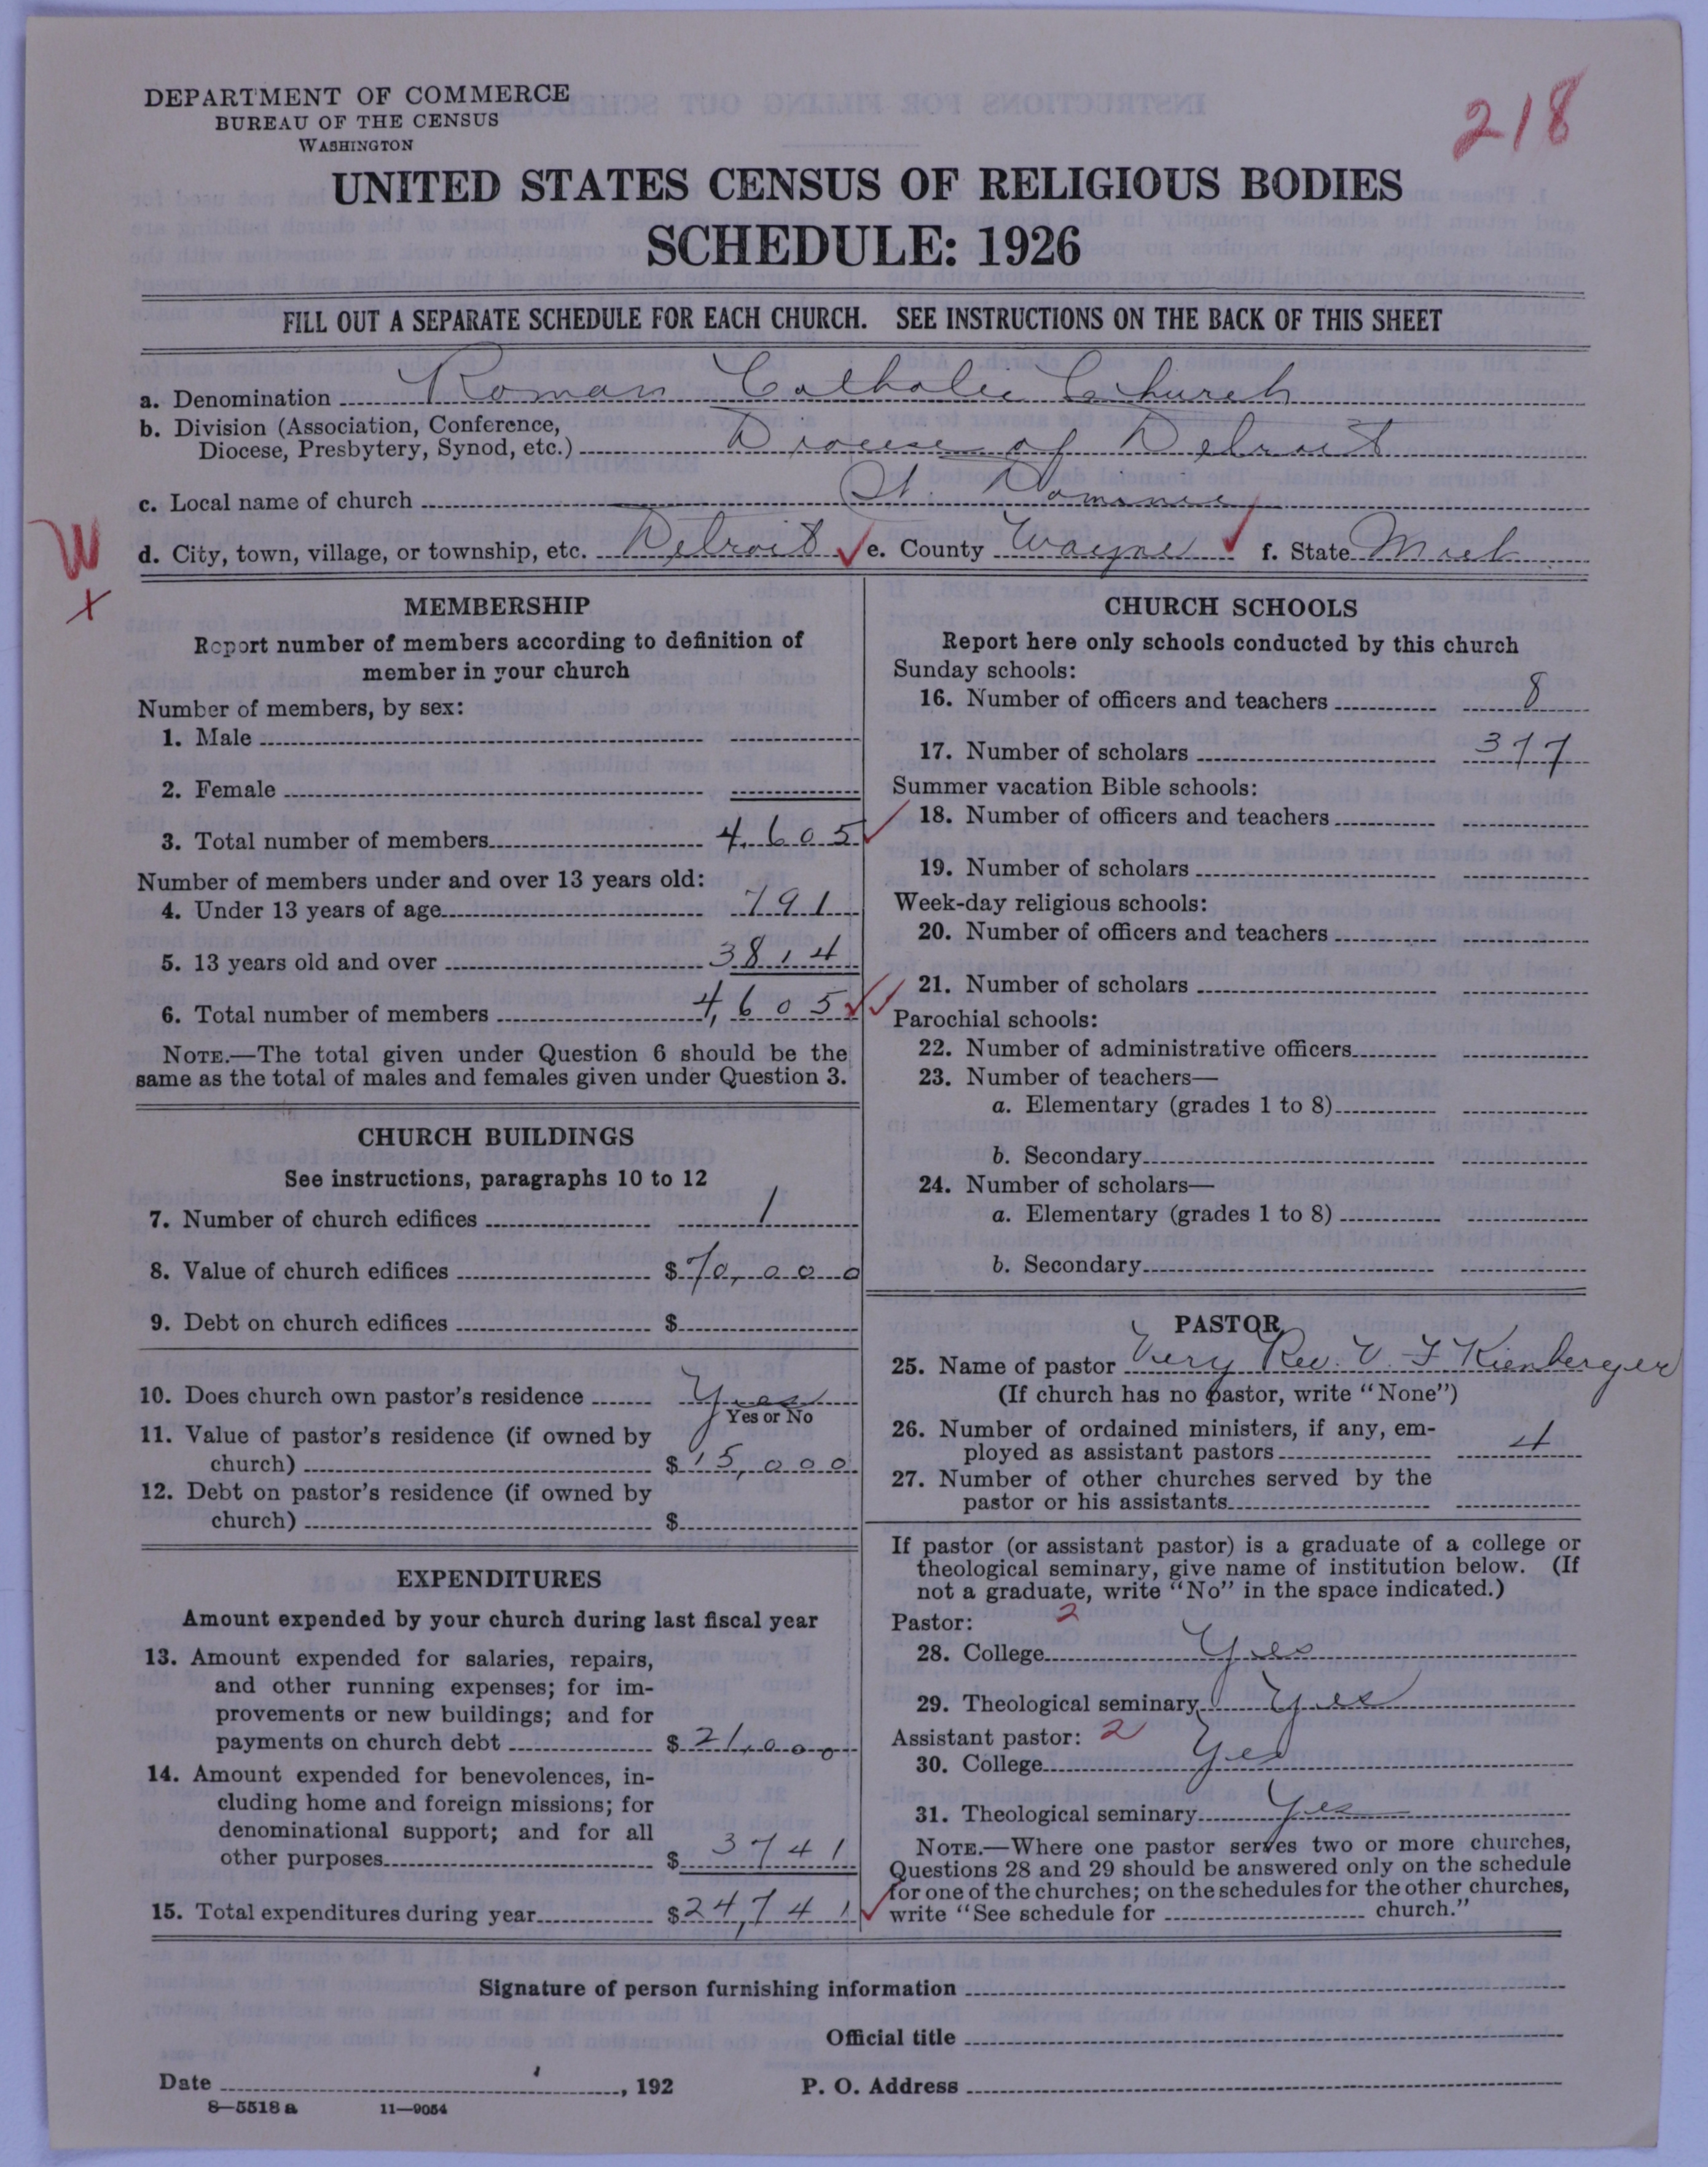 218
DEPARTMENT OF COMMERCE
BUREAU OF THE CENSUS
WASHINGTON
UNITED STATES CENSUS OF RELIGIOUS BODIES
SCHEDULE: 1926
FILL OUT A SEPARATE SCHEDULE FOR EACH CHURCH. SEE INSTRUCTIONS ON THE BACK OF THIS SHEET
a. Denomination Roman Catholic Church
b. Division (Association, Conference,
Diocese, Presbytery, Synod, etc.) Diocese of Detroit
c. Local name of church St. Dominic
W
d. City, town, village, or township, etc. Detroit ✓ e. County Wayne ✓ f. State Mich
X
MEMBERSHIP
Report number of members according to definition of
member in your church
Number of members, by sex:
1. Male
2. Female
3. Total number of members 4,605 ✓
Number of members under and over 13 years old:
4. Under 13 years of age 791
5. 13 years old and over 3814
6. Total number of members 4,605 ✓✓
NOTE.—The total given under Question 6 should be the
same as the total of males and females given under Question 3.
CHURCH BUILDINGS
See instructions, paragraphs 10 to 12
7. Number of church edifices 1
8. Value of church edifices $70,000
9. Debt on church edifices $
10. Does church own pastor's residence Yes
Yes or No
11. Value of pastor's residence (if owned by
church) $15,000
12. Debt on pastor's residence (if owned by
church) $
EXPENDITURES
Amount expended by your church during last fiscal year
13. Amount expended for salaries, repairs,
and other running expenses; for im-
provements or new buildings; and for
payments on church debt $21,000
14. Amount expended for benevolences, in-
cluding home and foreign missions; for
denominational support; and for all
other purposes $3741
15. Total expenditures during year $24,741 ✓
CHURCH SCHOOLS
Report here only schools conducted by this church
Sunday schools:
16. Number of officers and teachers 8
17. Number of scholars 377
Summer vacation Bible schools:
18. Number of officers and teachers
19. Number of scholars
Week-day religious schools:
20. Number of officers and teachers
21. Number of scholars
Parochial schools:
22. Number of administrative officers
23. Number of teachers—
a. Elementary (grades 1 to 8)
b. Secondary
24. Number of scholars—
a. Elementary (grades 1 to 8)
b. Secondary
PASTOR
25. Name of pastor Very Rev. V. F Kienberger
(If church has no pastor, write "None")
26. Number of ordained ministers, if any, em-
ployed as assistant pastors 4
27. Number of other churches served by the
pastor or his assistants
If pastor (or assistant pastor) is a graduate of a college or
theological seminary, give name of institution below. (If
not a graduate, write "No" in the space indicated.)
Pastor: 2
28. College Yes
29. Theological seminary Yes
Assistant pastor: 2
30. College Yes
31. Theological seminary Yes
NOTE.—Where one pastor serves two or more churches,
Questions 28 and 29 should be answered only on the schedule
for one of the churches; on the schedules for the other churches,
write "See schedule for church."
Signature of person furnishing information
Official title
Date , 192 P. O. Address
8—5518 a 11—9054